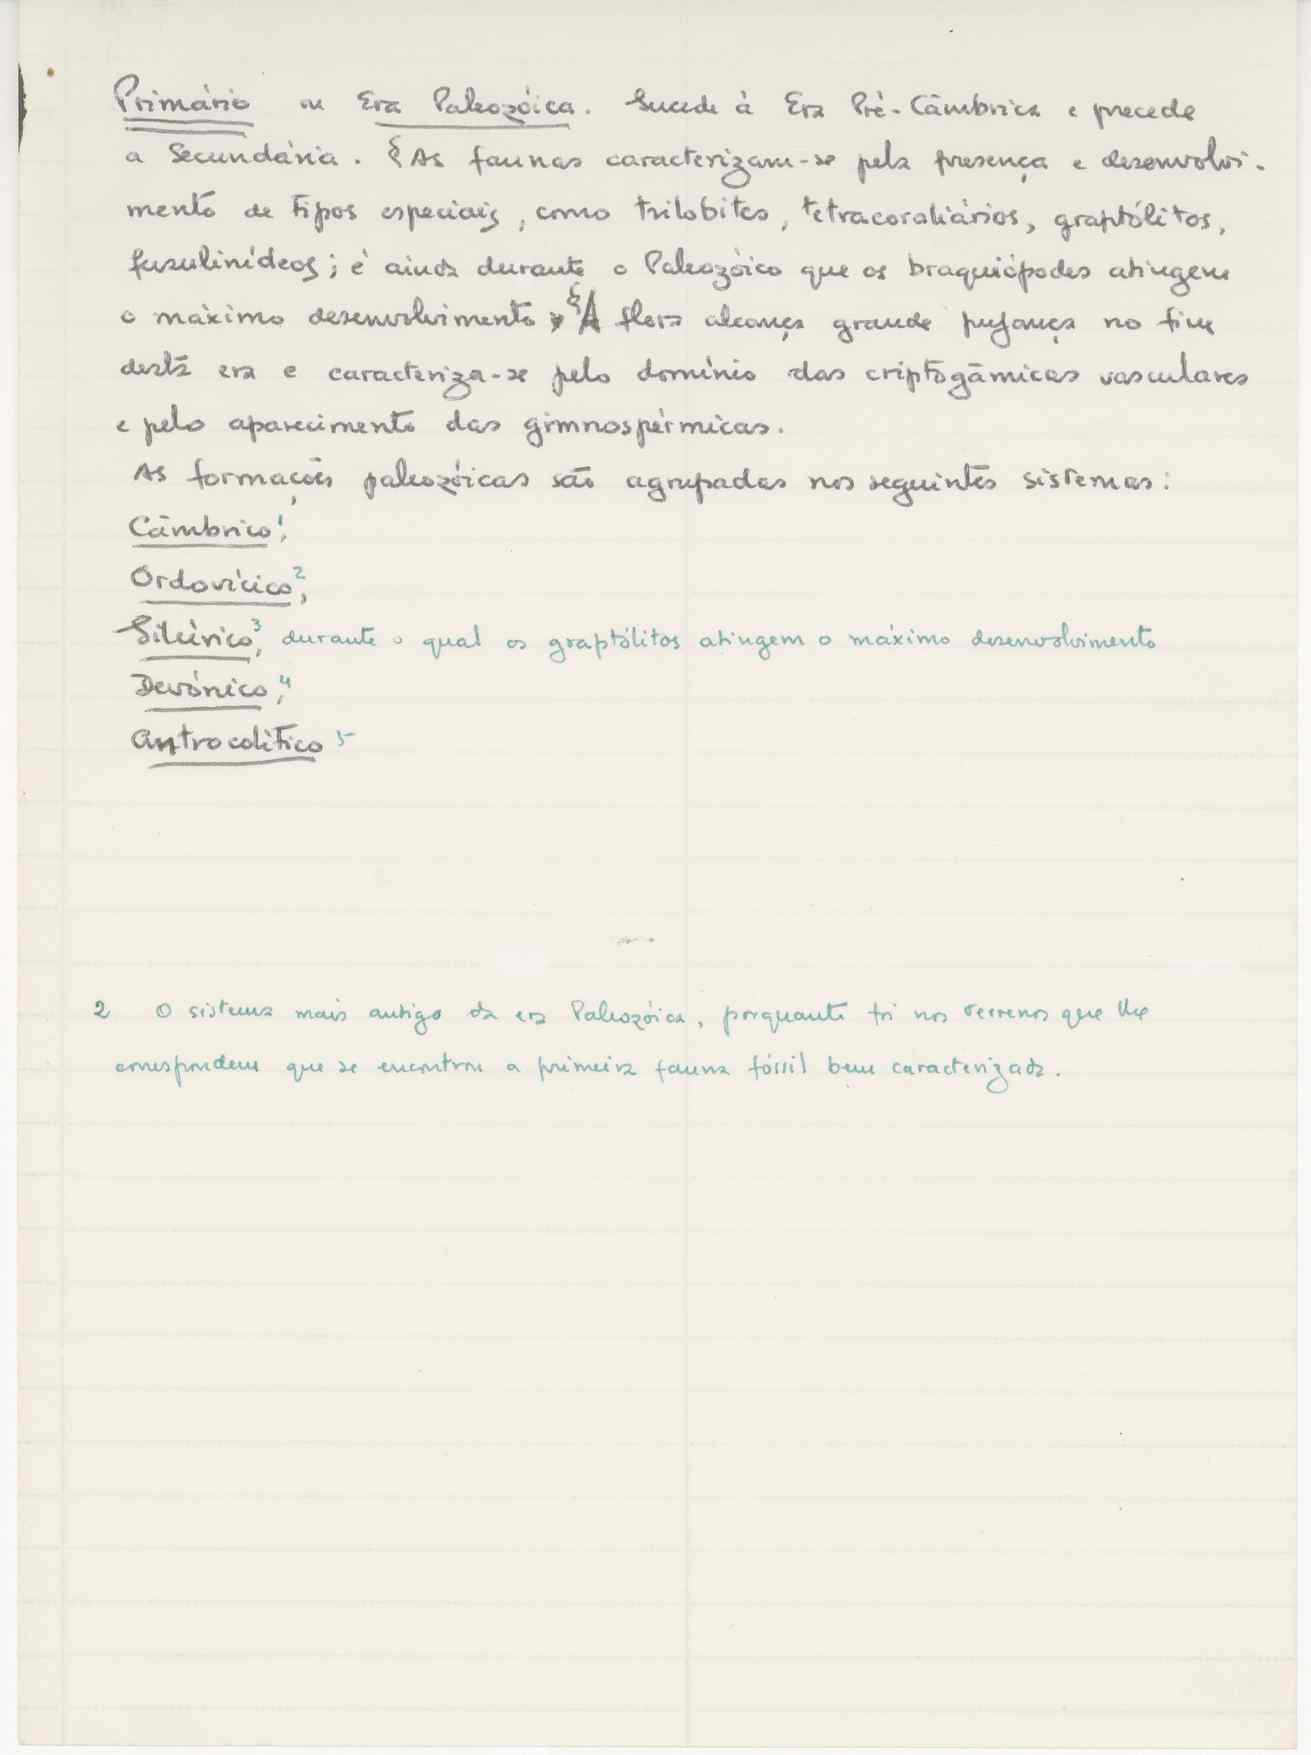 Primário ou Era Paleozóica. Sucede à Era Pré-Câmbrica e precede
a Secundária. § As faunas caracterizam-se pela presença e desenvolvi-
mento de tipos especiais, como trilobites, tetracoraliários, graptólitos,
fusulinídeos; é ainda durante o Paleozóico que os braquiópodes atingem
o máximo desenvolvimento. § A flora alcança grande pujança no fim
desta era e caracteriza-se pelo domínio das criptogâmicas vasculares
e pelo aparecimento das gimnospérmicas.
As formações paleozóicas são agrupadas nos seguintes sistemas:
Câmbrico 1,
Ordovícico 2,
Silúrico 3, durante o qual os graptólitos atingem o máximo desenvolvimento
Devónico, 4
Antracolítico 5
2 O sistema mais antigo da era Paleozóica, porquanto foi nos terrenos que lhe
correspondem que se encontrou a primeira fauna fóssil bem caracterizada.